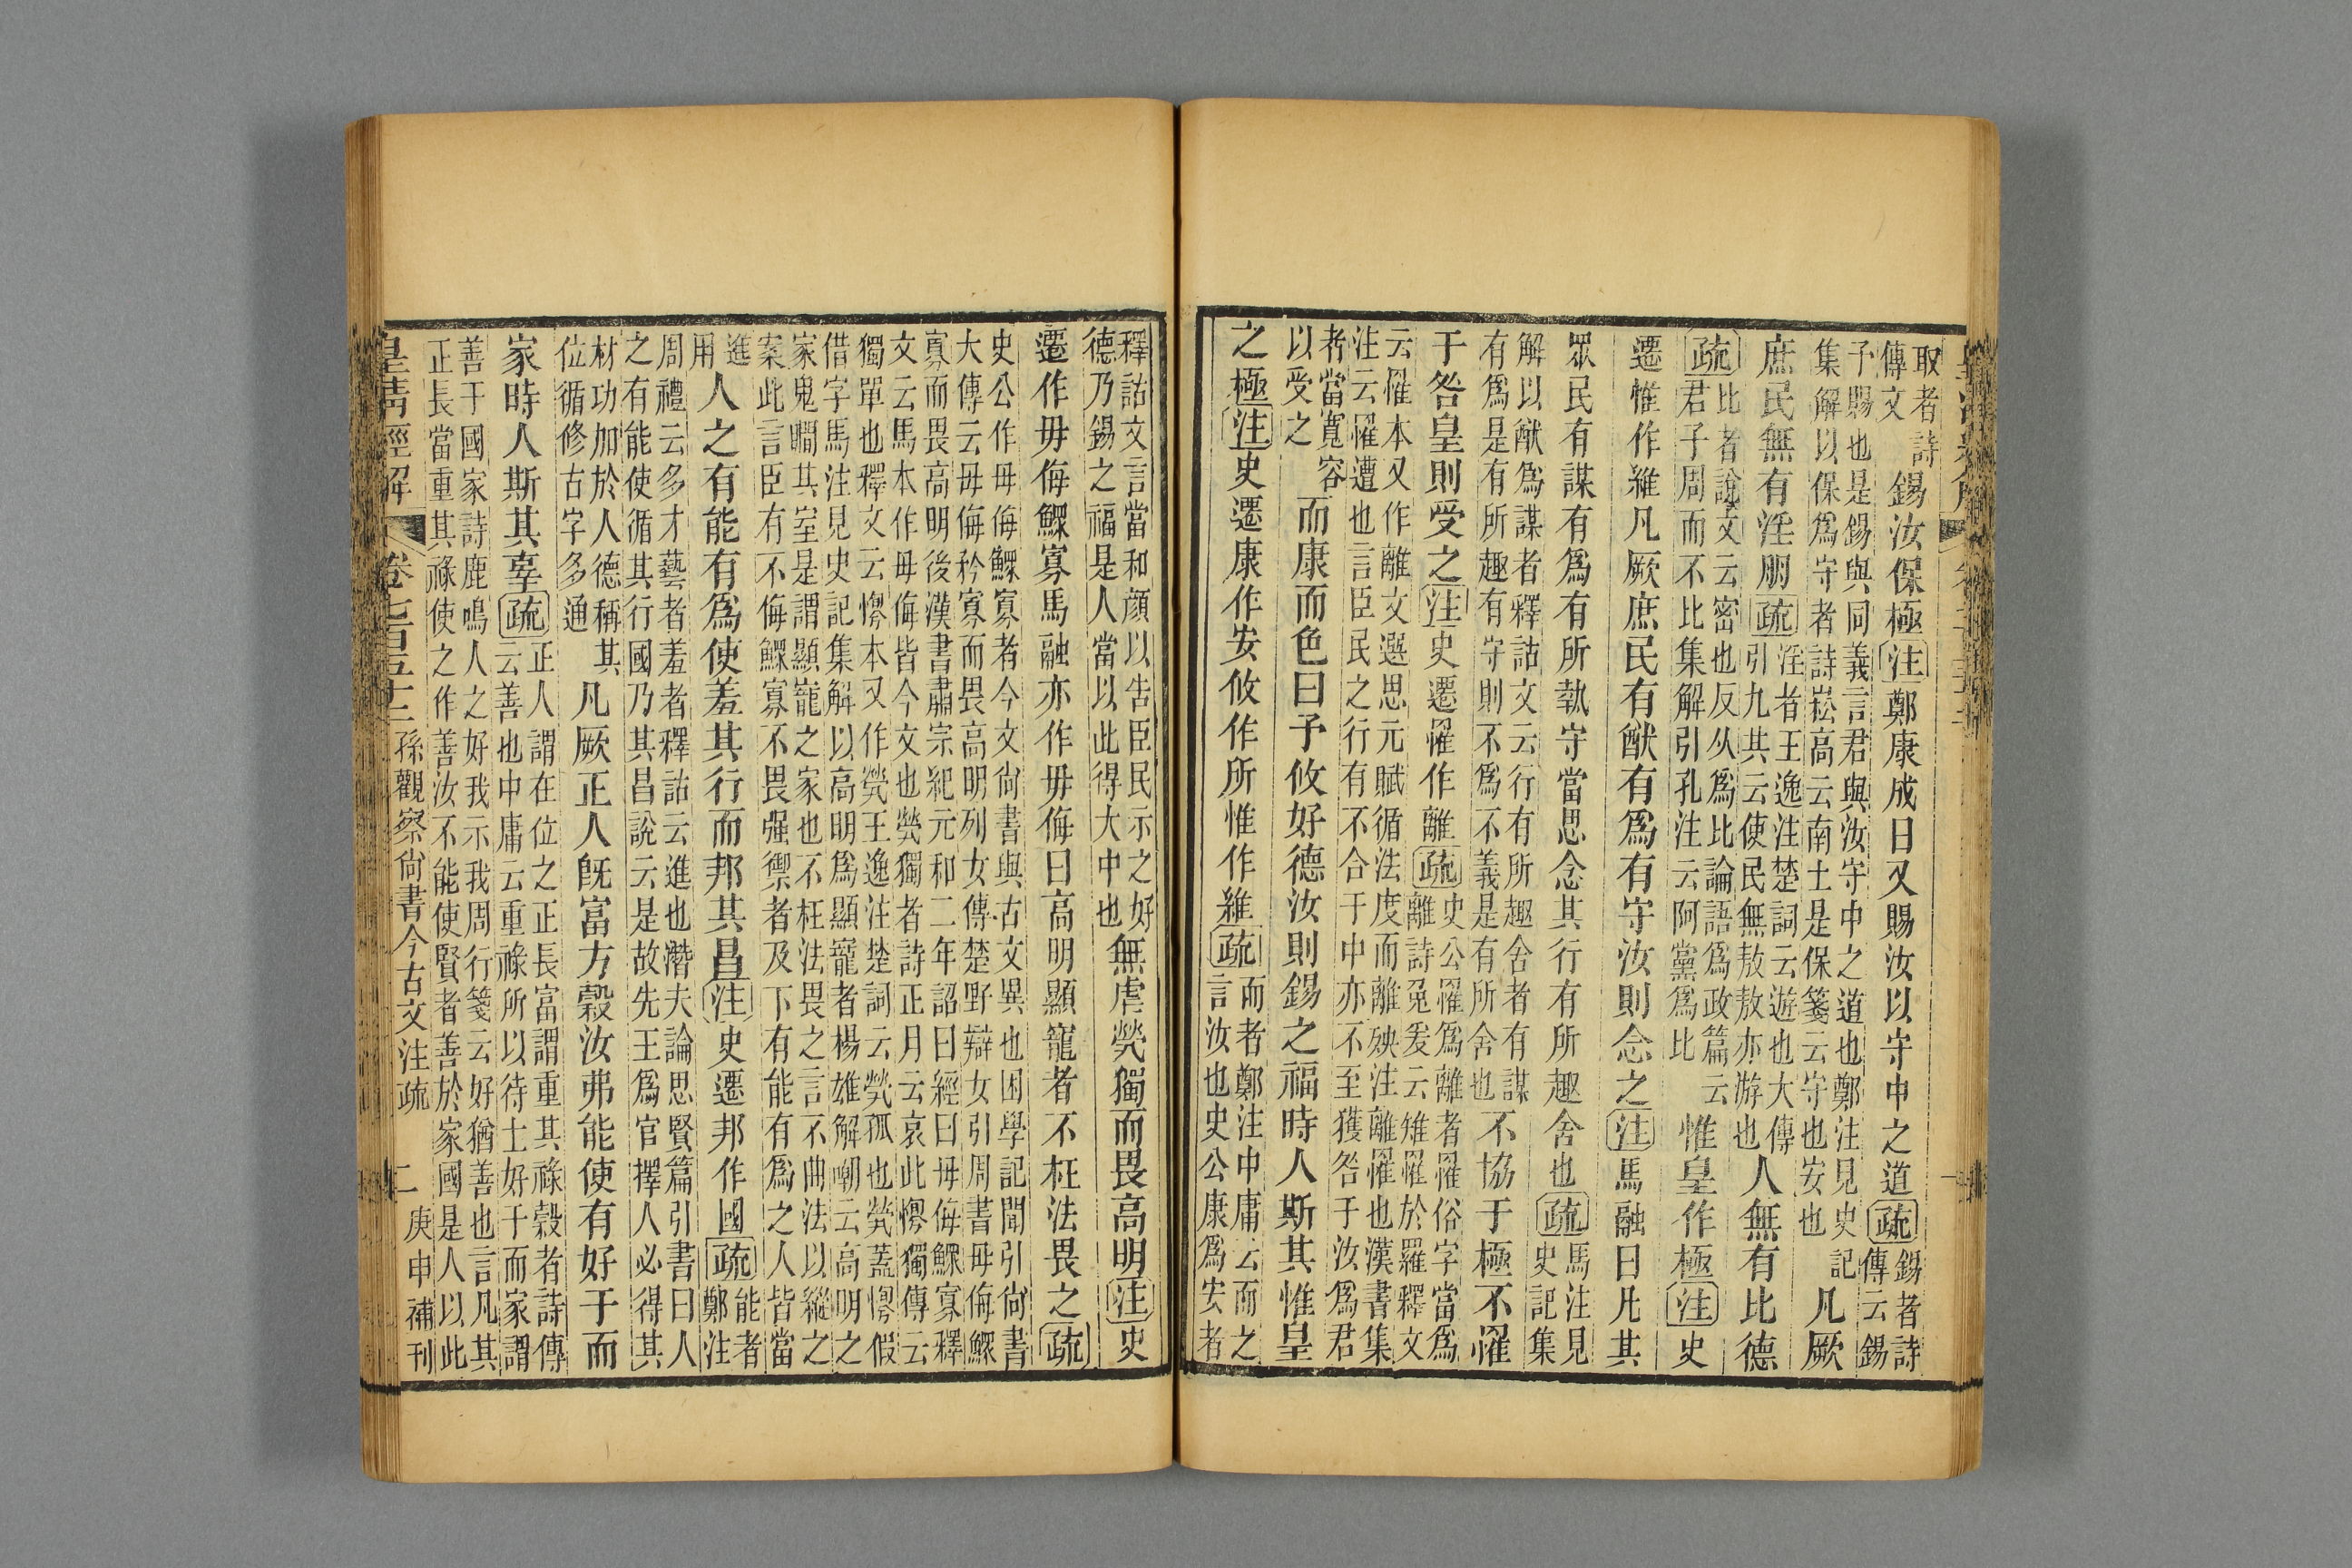 取者詩
傳文
錫汝保極注鄭康成曰又賜汝以守中之道疏
錫者詩
傳云錫
予賜也是錫與同義言君與汝守中之道也鄭注見史記
集解以保爲守者詩崧高云南土是保箋云守也安也
凡厥
庶民無有淫朋疏
淫者王逸注楚詞云遊也大傳
引九其云使民無敖敖亦游也
人無有比德
疏
比者說文云密也反从爲比論語爲政篇云
君子周而不比集解引孔注云阿黨爲比
惟皇作極注史
遷惟作維凡厥庶民有猷有爲有守汝則念之注馬融曰凡其
眾民有謀有爲有所執守當思念其行有所趣舍也疏
馬注見
史記集
解以猷爲謀者釋詁文云行有所趣舍者有謀
有爲是有所趣有守則不爲不義是有所舍也
不協于極不罹
于咎皇則受之注史遷罹作離疏
史公罹爲離者罹俗字當爲
離詩兔爰云雉罹於羅釋文
云罹本又作離文選思元賦循法度而離殃注離罹也漢書集
注云罹遭也言臣民之行有不合于中亦不至獲咎于汝爲君
者當寬容
以受之
而康而色曰予攸好德汝則錫之福時人斯其惟皇
之極注史遷康作安攸作所惟作維疏
而者鄭注中庸云而之
言汝也史公康爲安者
釋詁文言當和顔以告臣民示之好
德乃錫之福是人當以此得大中也
無虐煢獨而畏高明注史
遷作毋侮鰥寡馬融亦作毋侮曰高明顯寵者不枉法畏之疏
史公作毋侮鰥寡者今文尚書與古文異也困學記聞引尚書
大傳云毋侮矜寡而畏高明列女傳楚野辯女引周書毋侮鰥
寡而畏高明後漢書肅宗紀元和二年詔曰經曰毋侮鰥寡釋
文云馬本作毋侮皆今文也煢獨者詩正月云哀此惸獨傳云
獨單也釋文云惸本又作煢王逸注楚詞云煢孤也煢蓋惸假
借字馬注見史記集解以高明爲顯寵者楊雄解嘲云高明之
家鬼瞷其室是謂顯寵之家也不枉法畏之言不曲法以縱之
案此言臣有不侮鰥寡不畏强禦者及下有能有爲之人皆當
進
用
人之有能有爲使羞其行而邦其昌注史遷邦作國疏
能者
鄭注
周禮云多才藝者羞者釋詁云進也潛夫論思賢篇引書曰人
之有能使循其行國乃其昌說云是故先王爲官擇人必得其
材功加於人德稱其
位循修古字多通
凡厥正人旣富方穀汝弗能使有好于而
家時人斯其辜疏
正人謂在位之正長富謂重其祿穀者詩傳
云善也中庸云重祿所以待士好于而家謂
善于國家詩鹿鳴人之好我示我周行箋云好猶善也言凡其
正長當重其祿使之作善汝不能使賢者善於家國是人以此
皇清經解 卷七百五十 孫觀察尚書今古文注疏 二 庚申補刊